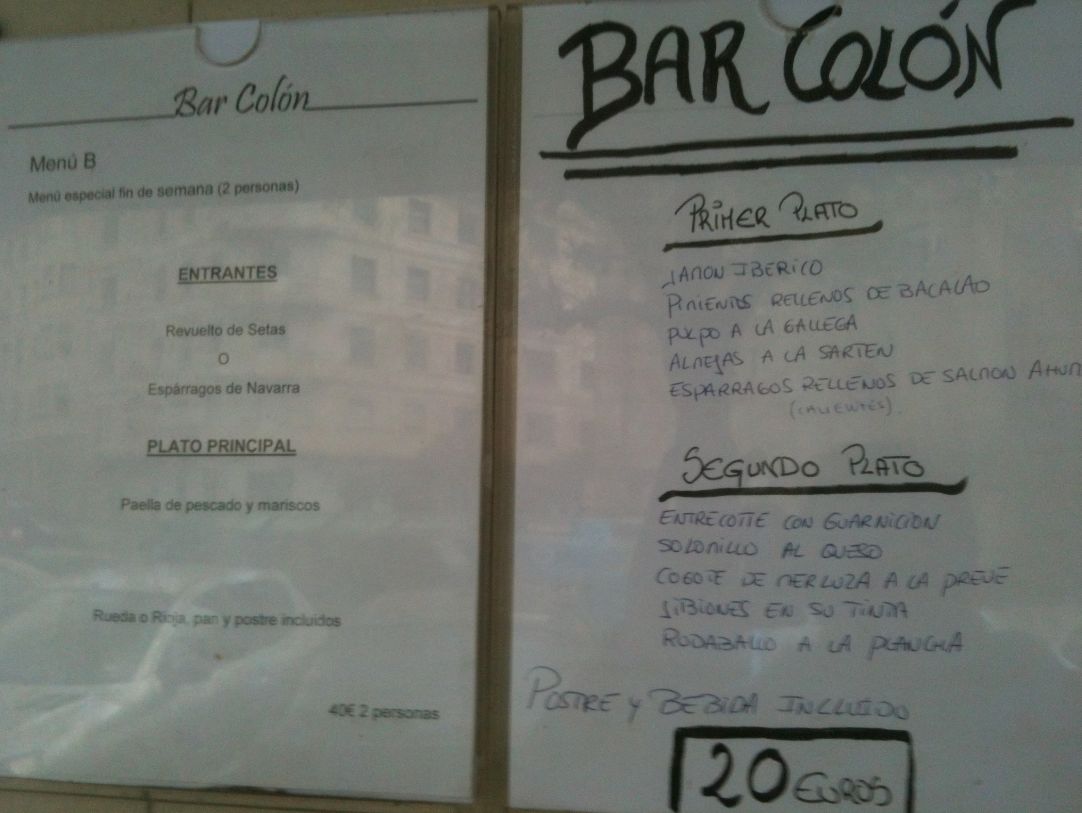 Bar Colón
Menú B
Menú especial fin de semana (2 personas)
ENTRANTES
Revuelto de Setas
O
Espárragos de Navarra
PLATO PRINCIPAL
Paella de pescado y mariscos
Rueda o Rioja, pan y postre incluidos
40€ 2 personas
BAR COLÓN
PRIMER PLATO
JAMON IBERICO
PIMIENTOS RELLENOS DE BACALAO
PULPO A LA GALLEGA
ALMEJAS A LA SARTEN
ESPARRAGOS RELLENOS DE SALMON AHUM
(CALIENTES)
SEGUNDO PLATO
ENTRECOTTE CON GUARNICION
SOLOMILLO AL QUESO
COGOTE DE MERLUZA A LA
JIBIONES EN SU TINTA
RODABALLO A LA PLANCHA
POSTRE Y BEBIDA INCLUIDO
20 EUROS